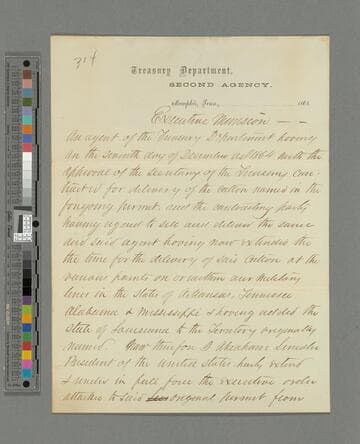 314
Treasury Department,
SECOND AGENCY,
Memphis, Tenn., 186
Executive Mansion — —
An agent of the Treasury Department having
on the seventh day of December AD 1864 with the
approval of the Secretary of the Treasury con
tracted for delivery of the cotton named in the
foregoing permit, and the contracting party
having agreed to sell and deliver the same
and said agent having now extended the
the time for the delivery of said cotton at the
various points on or within our military
lines in the State of Arkansas, Tennessee
Alabama & Mississippi & having added the
State of Louisiana to the Territory originally
named Now therefore I Abraham Lincoln
President of the United States hereby extend
& under in full force the executive order
attached to said original permit from